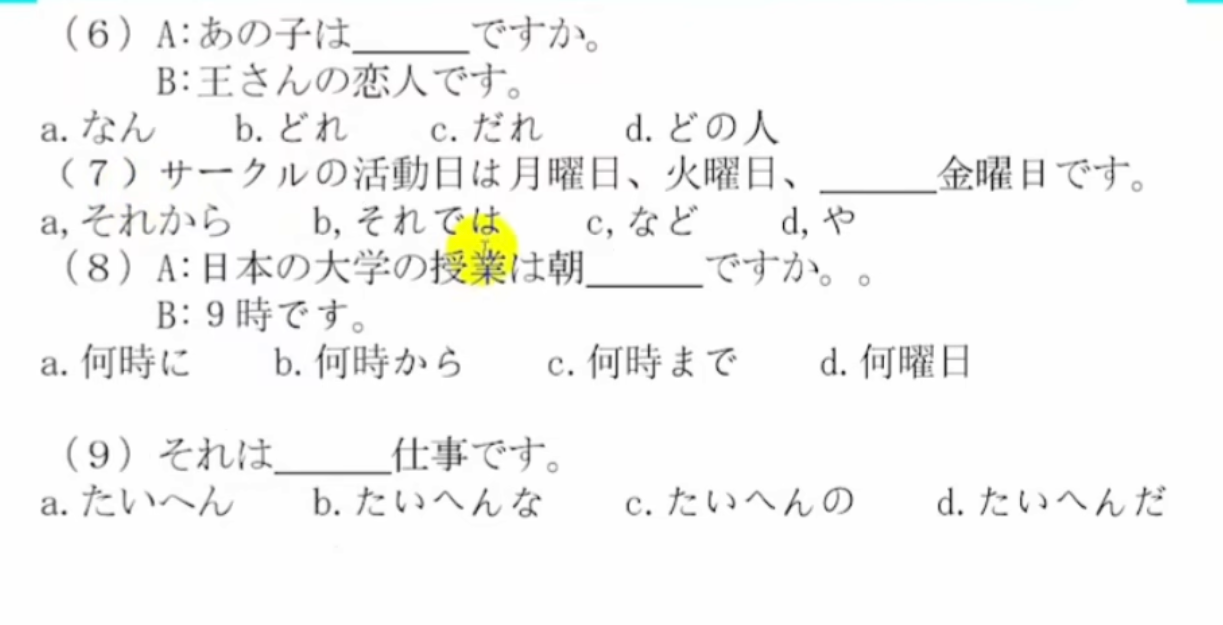 （6）A:あの子は______ですか。
B:王さんの恋人です。
a.なん b.どれ c.だれ d.どの人
（7）サークルの活動日は月曜日、火曜日、______金曜日です。
a,それから b,それでは c,など d,や
（8）A:日本の大学の授業は朝______ですか。。
B:9時です。
a.何時に b.何時から c.何時まで d.何曜日
（9）それは______仕事です。
a.たいへん b.たいへんな c.たいへんの d.たいへんだ